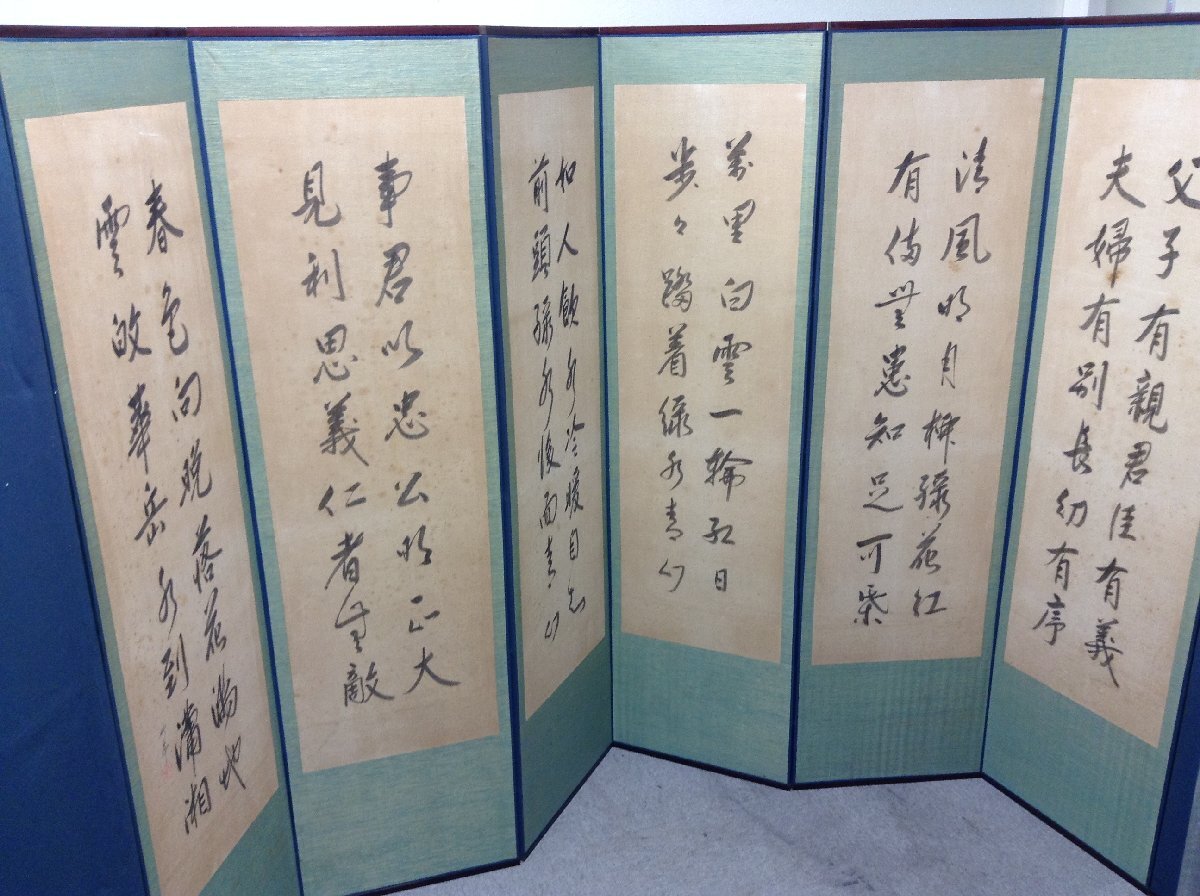 父子有親君臣有義
夫婦有別長幼有序
清風明月柳綠花紅
有備無患知足可樂
萬里白雲一輪紅日
步々踏着綠水青山
如人飲水冷暖自知
前頭綠水後面青山
事君以忠公明正大
見利思義仁者無敵
春色向晚落花滿地
雲收華岳水到瀟湘